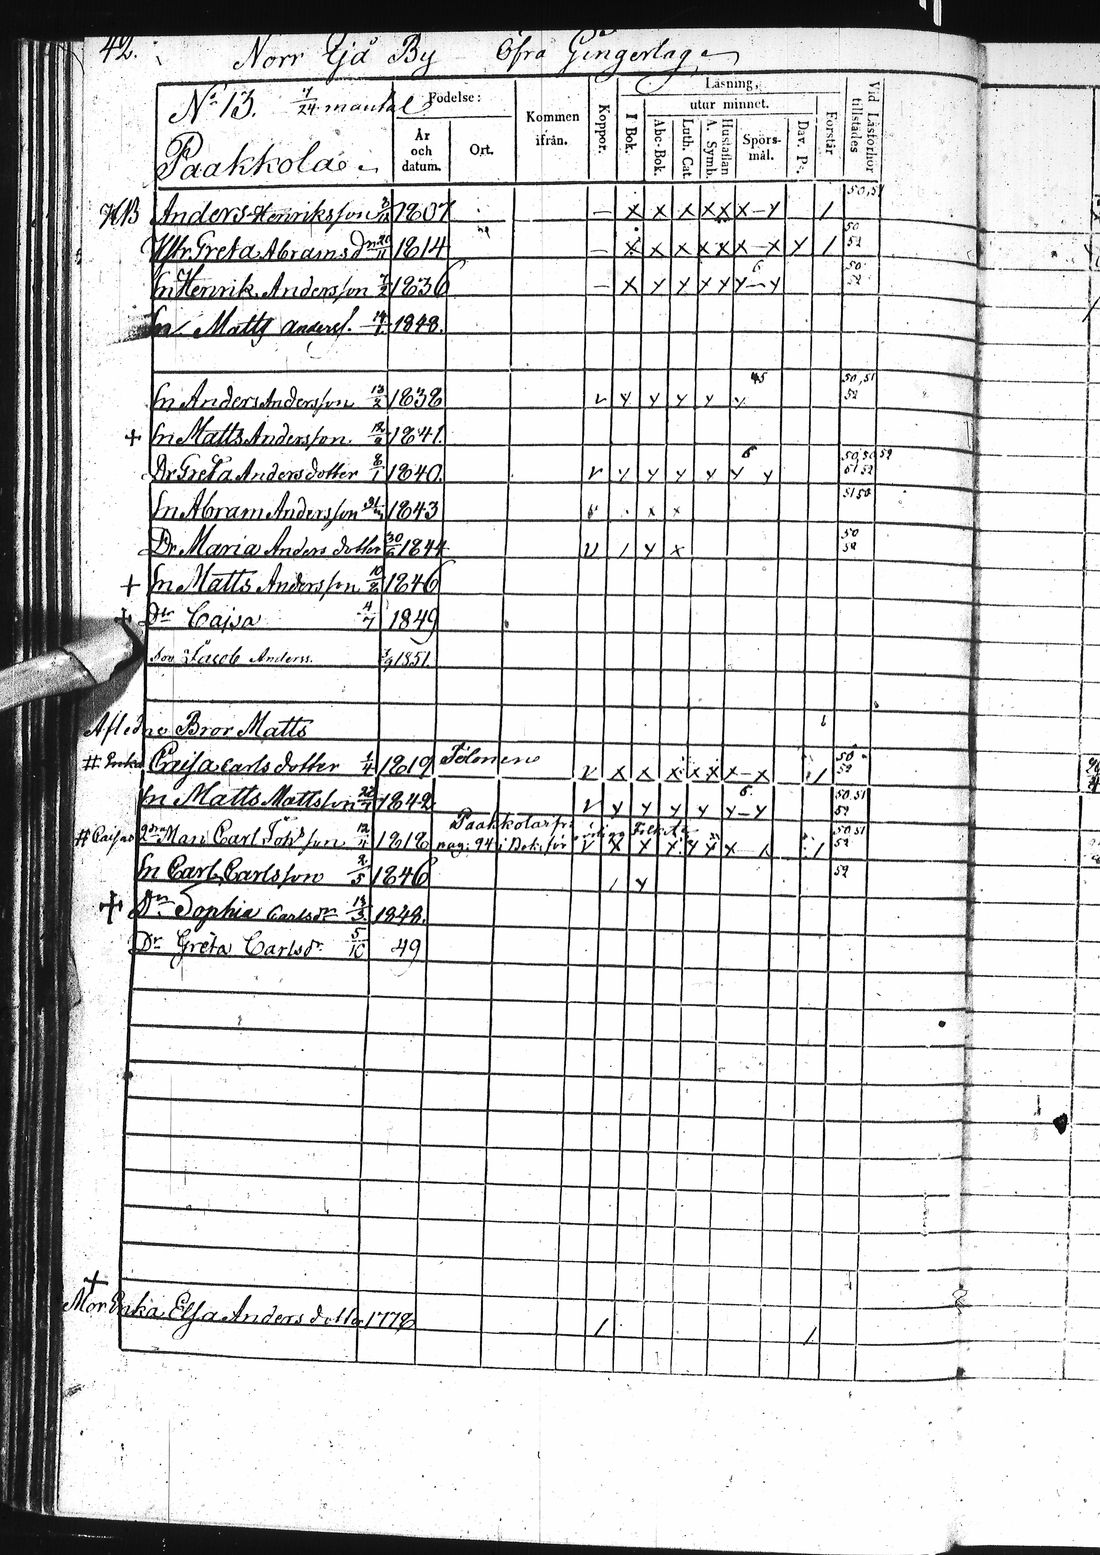 42. Norr Ijå By Öfra Gingerlag
N:o 13. 7/24 mantal
Paakkola
Födelse:
År och datum.
Ort.
Kommen ifrån.
Koppor.
Läsning,
I Bok.
utur minnet.
Abc-Bok.
Luth. Cat.
A. Symb.
Hustaflan
Spörsmål.
Dav. Ps.
Förstår
Vid Läsförhör tillstädes
Anders Henriksson 1807 — x x x x x x — y / 50,51
Hstr Greta Abramsd:r 20/11 1814 — x x x x x x — x y / 50 52
Sn Henrik Andersson 7/2 1836 — x y y y y y — y 6 50 52
Sn Matts Anderss. 14/1 1848.
Sn Anders Andersson 13/2 1838 v y y y y y 45 50,51 52
+ Sn Matts Andersson 1841.
Dr Greta Andersdotter 8/1 1840. v y y y y y y 6
Sn Abram Andersson 1843 x x 51 50
Dr Maria Andersdotter 30/6 1844 v / y x 50 52
+ Sn Matts Andersson 10/8 1846
+ Dtr Cajsa 4/7 1849
Son Jacob Anderss. 1851.
Afledne Bror Matts
# Enka Caisa Carlsdotter 1/4 1819 Tölonen v x x x x x x — x / 50 52
Sn Matts Mattsson 1842. v y y y y y — y 6 50,51 52
# Caisas 2dra Man Carl Joh:sson 12/4 1818 50,51 52
Sn Carl Carlsson 2/5 1846 / y 52
+ Dr Sophia Carlsdr 13/3 1848.
Dr Greta Carlsdr 5/10 49
+
Mor Enka Elsa Andersdotter 1778 / /